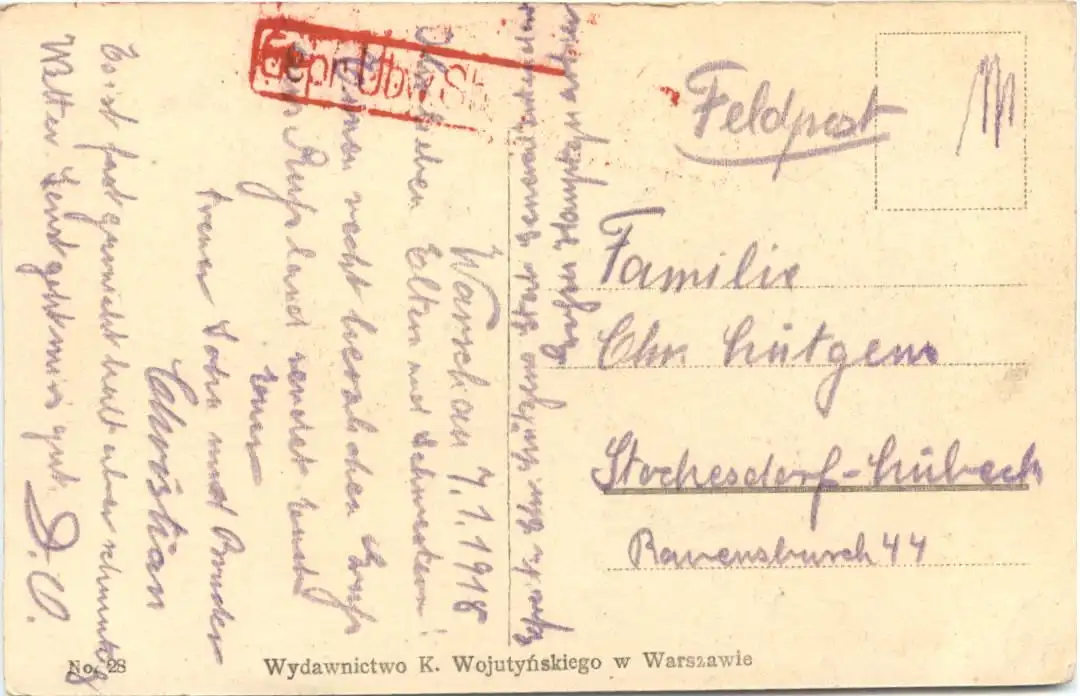 Gepr. Übw. St
Feldpost
Familie
Chr. Lütgens
Stochesdorf-Lübeck
Ravensbusch 44
Warschau 7.1.1918
Ihr lieben Eltern und Schwestern!
Einen recht herzlichen Gruß
aus Rußland sendet Euch
Euer
treuer Sohn und Bruder
Christian
Es ist fast garnicht kalt aber schmutzig
Wetter sonst geht mir's gut.
D. O.
No. 28
Wydawnictwo K. Wojutyńskiego w Warszawie